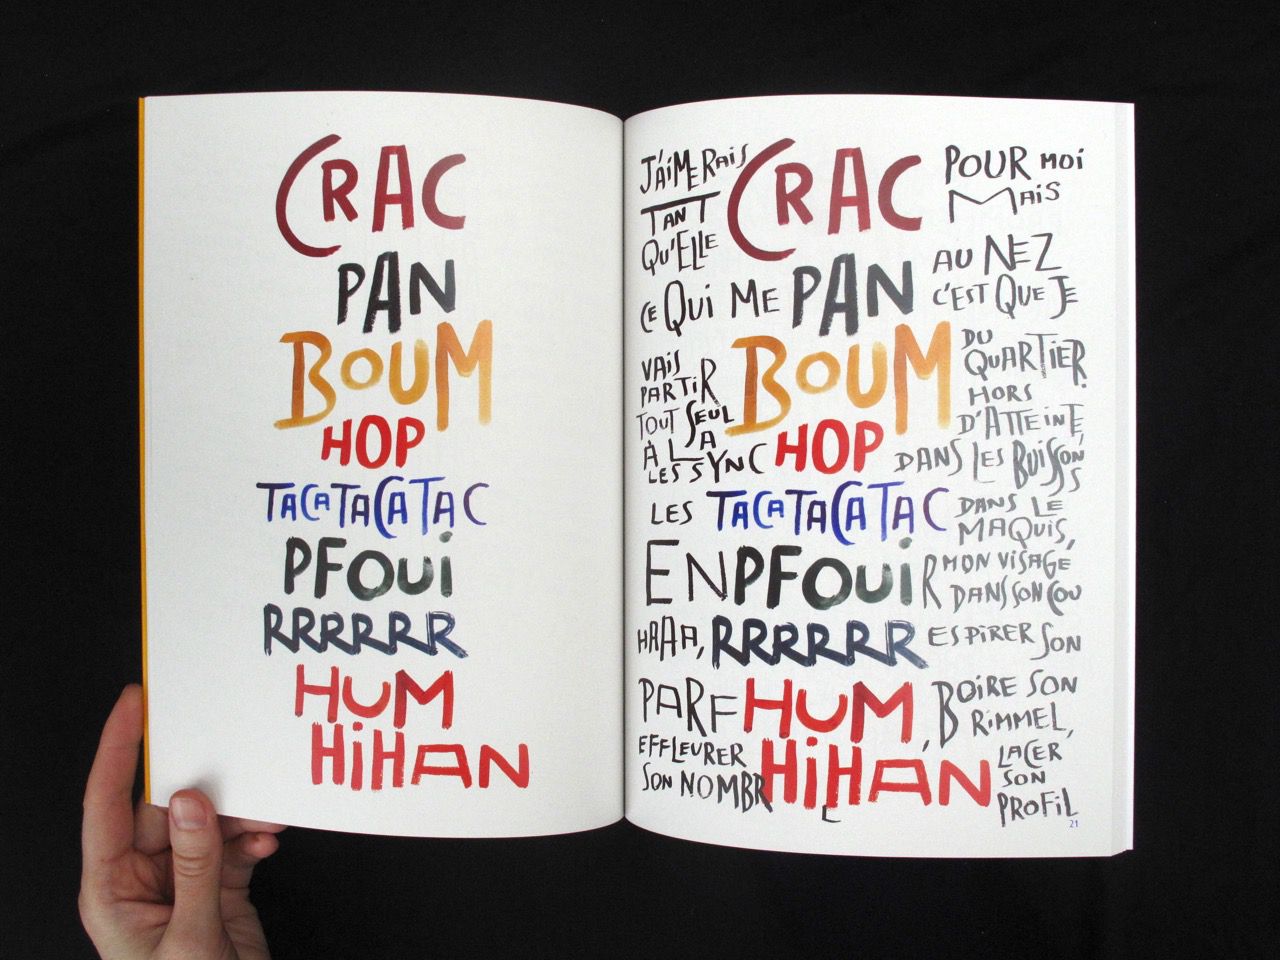 CRAC
PAN
BOUM
HOP
TACATACATAC
PFOUI
RRRRRR
HUM
HIHAN
J'AIMERAIS
TANT
QU'ELLE
CRAC
POUR MOI
MAIS
CE QUI ME PAN
AU NEZ
C'EST QUE JE
VAIS
PARTIR
TOUT SEUL
À LA
BOUM
DU
QUARTIER.
HORS
D'ATTEINTE,
LES SYNC HOP DANS LES BUISSONSSS
LES TACATACATAC
DANS LE
MAQUIS,
ENPFOUIR
MON VISAGE
DANS SON COU
HAAA, RRRRRR ESPIRER SON
PARFHUM,
BOIRE SON
RIMMEL,
EFFLEURER
SON NOMBRHIHAN
L
LACER
SON
PROFIL
21